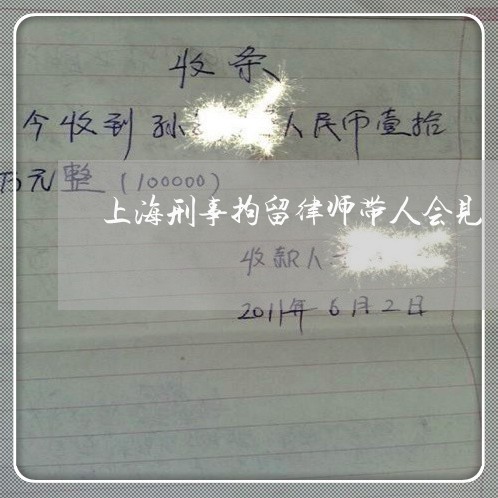 收条
今收到孙 人民币壹拾
万元整(100000)
上海刑事拘留律师带人会见
收款人
2011年6月2日